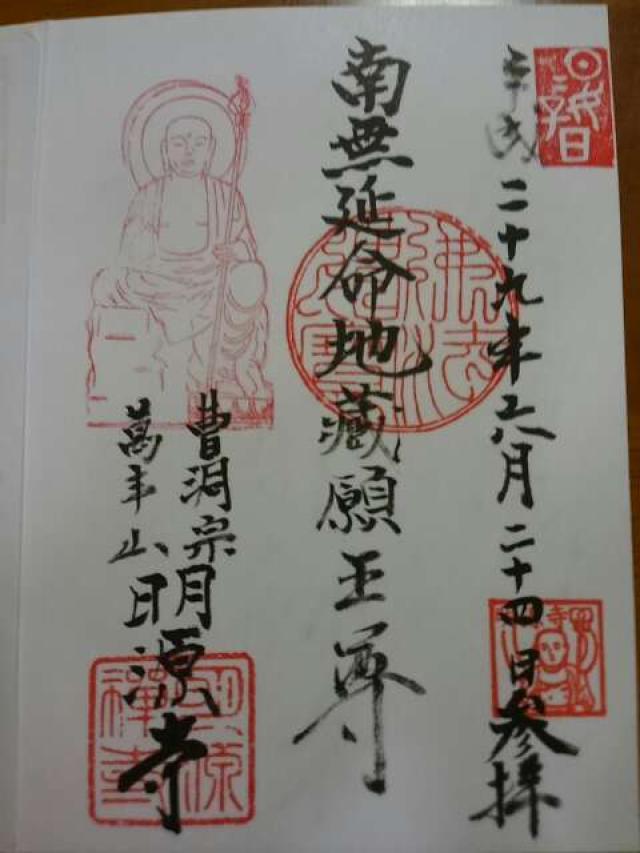 平成二十九年六月二十四日参拝
南無延命地藏願王尊
曹洞宗
萬年山
明源寺
佛法僧寶
明源禪寺